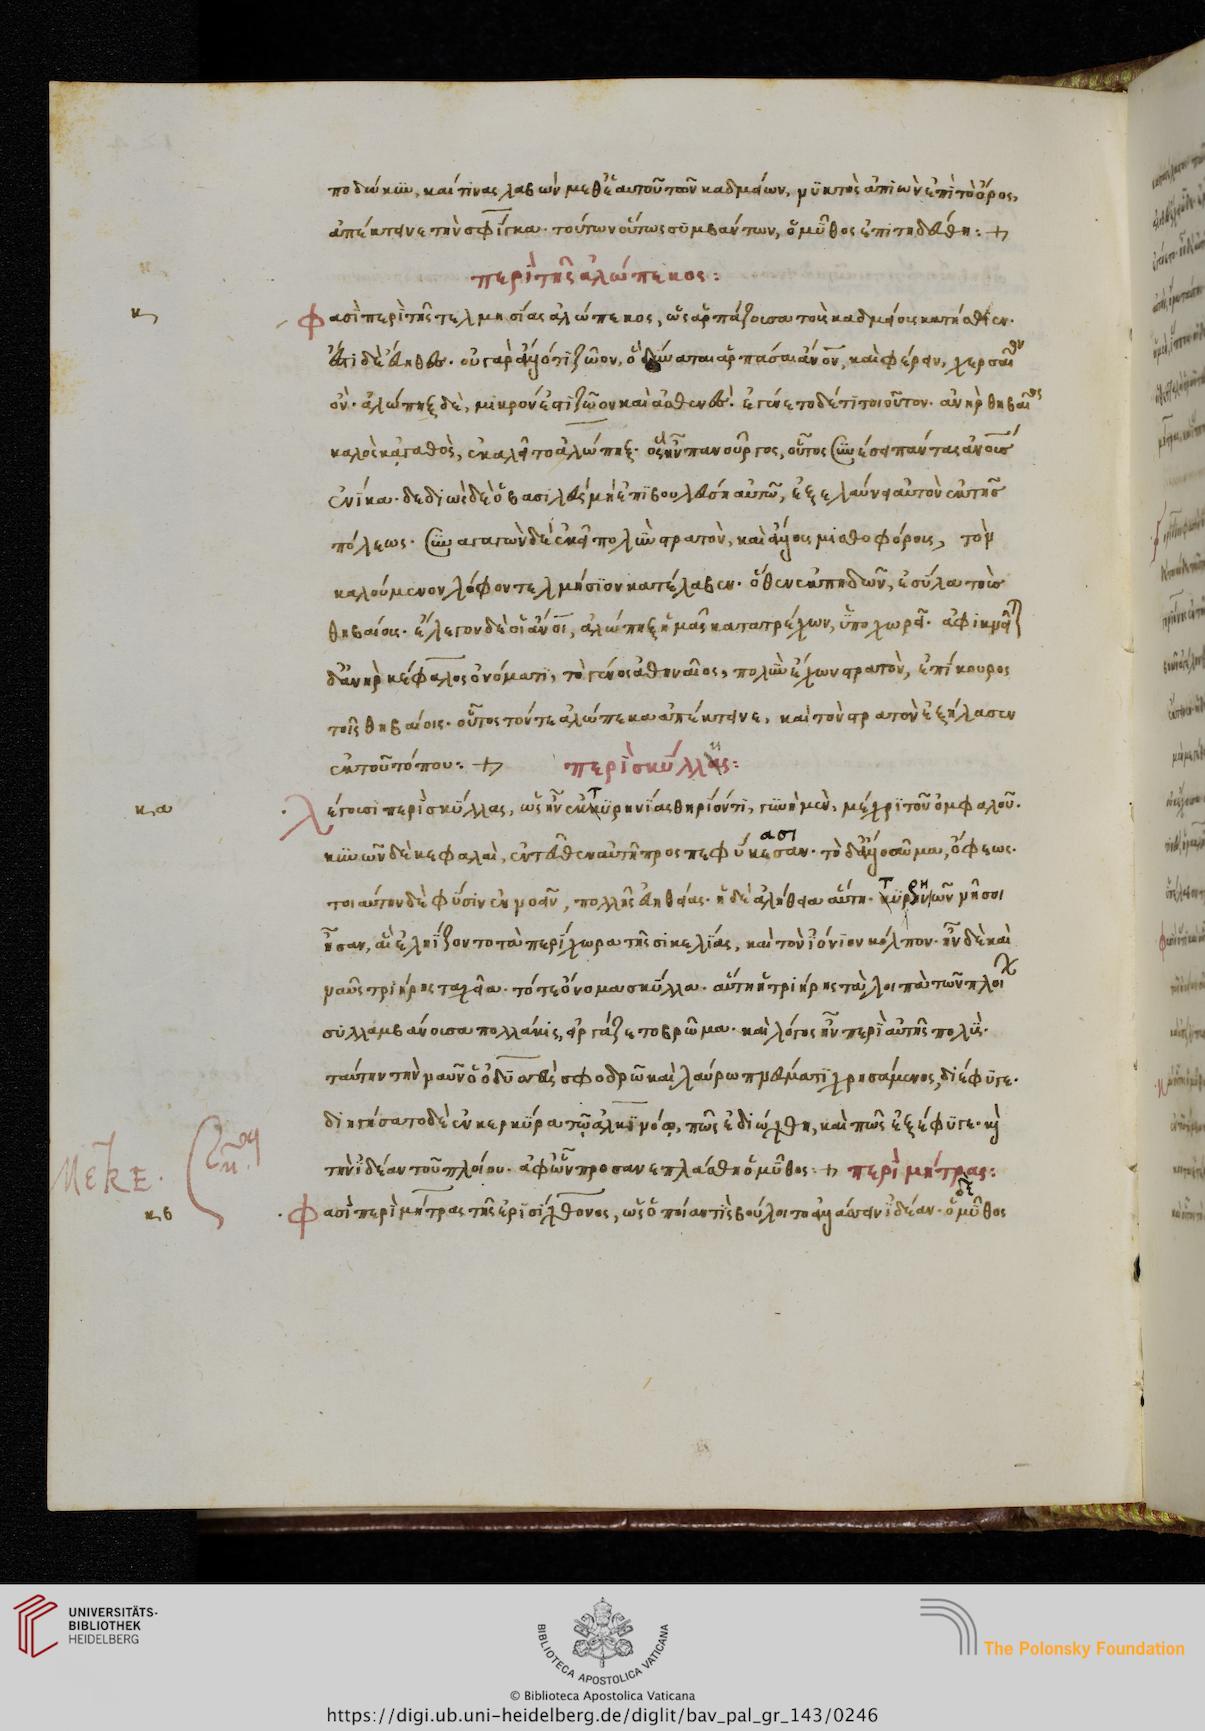 ποδώκην, καί τινας λαβὼν μεθ' ἑαυτοῦ τῶν καδμείων, νυκτὸς ἀπιὼν ἐπὶ τὸ ὄρος,
ἀπέκτεινε τὴν σφίγκα. τούτων οὕτως συμβάντων, ὁ μῦθος ἐπιτηδεύθη:+
περὶ τῆς ἀλώπεκος:
κ
φασὶ περὶ τῆς τελμησίας ἀλώπεκος, ὡς ἁρπάζουσα τοὺς καδμείους κατήσθιεν.
ἔστι δὲ εὔηθες. οὐ γὰρ ἄλλό τι ζῶον, ὃ δύναται ἁρπάσαι ἄνον, καὶ φέρειν, χερσαῖον
ὄν. ἀλώπηξ δὲ, μικρόν ἐστι ζῶον καὶ ἀσθενές. ἐγένετο δέ τι τοιοῦτον. ἀνὴρ θηβαῖος
καλὸς κἀγαθὸς, ἐκαλεῖτο ἀλώπηξ. ὃς ἦν πανοῦργος, οὗτος συνέσει πάντας ἀνους
ἐνίκα. δεδιὼς δὲ ὁ βασιλεὺς μὴ ἐπιβουλεύση αὐτῶ, ἐξελαύνει αὐτὸν ἐκ τῆς
πόλεως. συναγαγὼν δὲ ἐκεῖ πολὺν στρατὸν, καὶ ἄλλοις μισθοφόροις, τὸν
καλούμενον λόφον τελμήσιον κατέλαβεν. ὅθεν ἐκπηδῶν, ἐσύλα τοὺς
θηβαίους. ἔλεγον δὲ οἱ ἄνοι, ἀλώπηξ ἡμᾶς κατατρέχων, ὑποχωρεῖ. ἀφικνεῖται
δ' ἀνὴρ κέφαλος ὀνόματι, τὸ γένος ἀθηναῖος, πολὺν ἔχων στρατὸν, ἐπίκουρος
τοῖς θηβαίοις. οὗτος τόν τε ἀλώπεκα ἀπέκτεινε, καὶ τὸν στρατὸν ἐξήλασεν
ἐκ τοῦ τόπου:+ περὶ σκύλλης:
κα
λέγουσι περὶ σκύλλας, ὡς ἦν ἐν τυρηνίας θηρίον τι, γυνὴ μὲν, μέχρι τοῦ ὀμφαλοῦ.
κυνῶν δὲ κεφαλαὶ, ἐντεῦθεν αὐτῆ προσπεφύκεσαν. ασι τὸ δ' ἄλλο σῶμα, ὄφεως.
τοιαύτην δὲ φύσιν ἐννοεῖν, πολλῆς εὐηθείας. ἡ δὲ ἀλήθεια αὕτη. τυρρηνῶν νῆσοι
ἦσαν, αἳ ἐληΐζοντο τὰ περίχωρα τῆς σικελίας, καὶ τὸν ἰόνιον κόλπον. ἦν δὲ καὶ
ναῦς τριήρης ταχεῖα. τό τε ὄνομα σκύλλα. αὕτη ἡ τριήρης τὰ λοιπὰ τῶν πλοίων
συλλαμβάνουσα πολλάκις, εἰργάζετο βρῶμα. καὶ λόγος ἦν περὶ αὐτῆς πολύς.
ταύτην τὴν ναῦν ὁ ὀδυσσεὺς σφοδρῶ καὶ λαύρω πνεύματι χρησάμενος, διέφυγε.
διηγήσατο δὲ ἐν κερκύρα τῷ ἀλκινόῳ, πῶς ἐδιώχθη, καὶ πῶς ἐξέφυγε. καὶ
τὴν ἰδέαν τοῦ πλοίου. ἀφ' ὧν προσανεπλάσθη ὁ μῦθος:+ περὶ μήτρας:
κβ
φασὶ περὶ μήτρας τῆς ἐρισίχθονος, ὡς ὁπόταν τις βούλοιτο ἀλλάσσειν ἰδέαν. ὁ δὲ μῦθος
UNIVERSITÄTS-
BIBLIOTHEK
HEIDELBERG
BIBLIOTECA APOSTOLICA VATICANA
The Polonsky Foundation
© Biblioteca Apostolica Vaticana
https://digi.ub.uni-heidelberg.de/diglit/bav_pal_gr_143/0246